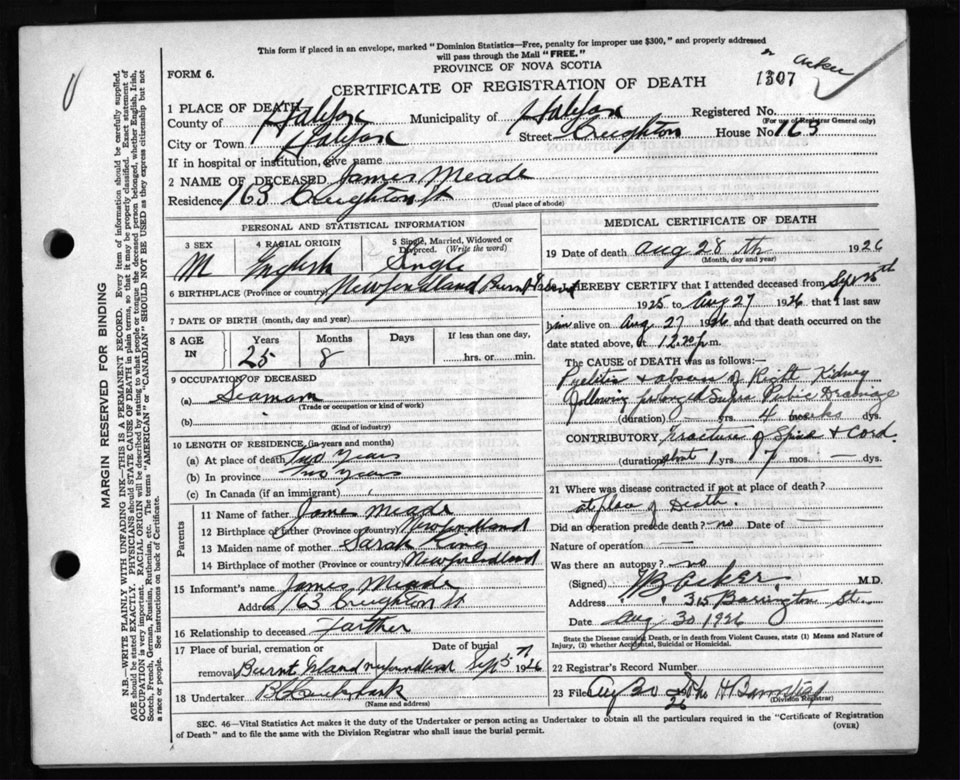 This form if placed in an envelope, marked "Dominion Statistics—Free, penalty for improper use $300," and properly addressed
will pass through the Mail "FREE."
PROVINCE OF NOVA SCOTIA
FORM 6.
CERTIFICATE OF REGISTRATION OF DEATH
1307
1 PLACE OF DEATH
County of Halifax Municipality of Halifax Registered No.
(For use of Registrar General only)
City or Town Halifax Street Creighton House No. 163
If in hospital or institution, give name
2 NAME OF DECEASED James Meade
Residence 163 Creighton St
(Usual place of abode)
PERSONAL AND STATISTICAL INFORMATION
3 SEX 4 RACIAL ORIGIN 5 Single, Married, Widowed or Divorced. (Write the word)
M English Single
6 BIRTHPLACE (Province or country) Newfoundland Burnt Island
7 DATE OF BIRTH (month, day and year)
8 AGE IN Years Months Days If less than one day,
25 8 hrs. or min.
9 OCCUPATION OF DECEASED
(a) Seaman
(Trade or occupation or kind of work)
(b)
(Kind of industry)
10 LENGTH OF RESIDENCE (in years and months)
(a) At place of death Two Years
(b) In province Two Years
(c) In Canada (if an immigrant)
Parents
11 Name of father James Meade
12 Birthplace of father (Province or country) Newfoundland
13 Maiden name of mother Sarah King
14 Birthplace of mother (Province or country) Newfoundland
15 Informant's name James Meade
Address 163 Creighton St
16 Relationship to deceased Farther
17 Place of burial, cremation or removal Date of burial
Burnt Island newfoundland Sept 1926
18 Undertaker
(Name and address)
MEDICAL CERTIFICATE OF DEATH
19 Date of death Aug 28 th 1926
(Month, day and year)
HEREBY CERTIFY that I attended deceased from Sept
1925 to Aug 27 1926 that I last saw
him alive on Aug 27 1926 and that death occurred on the
date stated above, at 12 p.m.
The CAUSE OF DEATH was as follows:—
Pyelitis & abscess of Right Kidney
following prolonged Supra Pubic Drainage
(duration) — yrs. 4 mos. dys.
CONTRIBUTORY Fracture of Spine & Cord.
(duration) about 1 yrs. 7 mos. — dys.
21 Where was disease contracted if not at place of death?
at place of Death.
Did an operation precede death? no Date of —
Nature of operation —
Was there an autopsy? no
(Signed) Acker M.D.
Address 315 Barrington St.
Date Aug 30 1926
State the Disease causing Death, or in death from Violent Causes, state (1) Means and Nature of Injury, (2) whether Accidental, Suicidal or Homicidal.
22 Registrar's Record Number
23 Filed Aug 30 26
(Division Registrar)
SEC. 46—Vital Statistics Act makes it the duty of the Undertaker or person acting as Undertaker to obtain all the particulars required in the "Certificate of Registration
of Death" and to file the same with the Division Registrar who shall issue the burial permit.
(OVER)
MARGIN RESERVED FOR BINDING
N.B.—WRITE PLAINLY WITH UNFADING INK—THIS IS A PERMANENT RECORD. Every item of information should be carefully supplied.
AGE should be stated EXACTLY. PHYSICIANS should STATE CAUSE OF DEATH in plain terms, so that it may be properly classified. Exact statement of
OCCUPATION is very important. RACIAL ORIGIN will be described by stating to what people or tongue the deceased person belonged, whether English, Irish,
Scotch, French, German, Russian, Ruthenian, etc. The terms "AMERICAN" or "CANADIAN" SHOULD NOT BE USED as they express citizenship but not
a race or people. See instructions on back of Certificate.